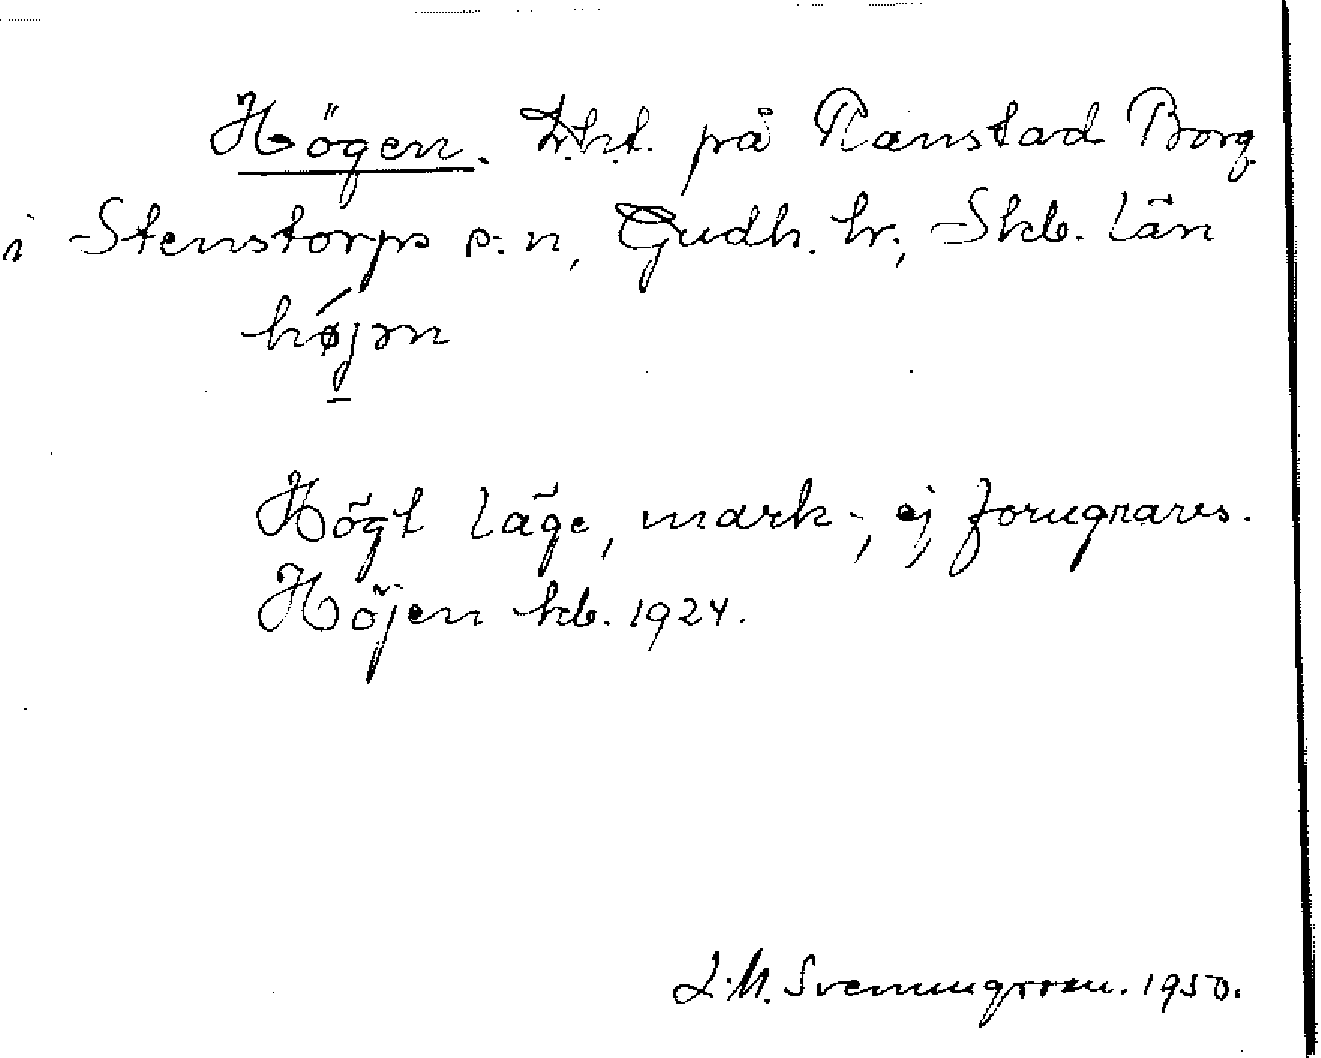 Högen. L.h.t. på Ranstad Borg.
i Stenstorps s:n, Gudh. hr., Skb. län
højən
Högt läge, mark-, ej forngravs.
Höjen kb. 1924.
L.M. Svenungsson. 1950.